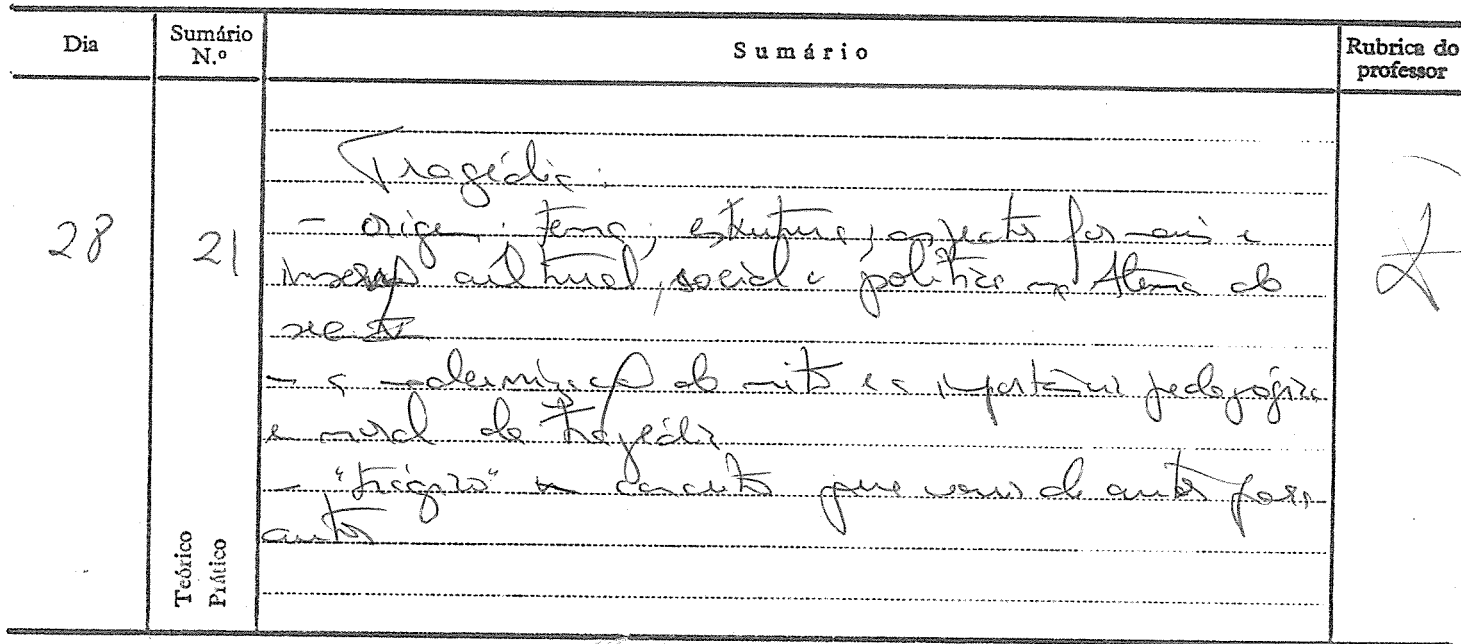 Dia
Sumário N.º
Sumário
Rubrica do professor
28
21
Teórico
Prático
Tragédia:
- origem, tema, estrutura, aspectos formais e
inserção cultural, social e política na Atenas do
séc. V
- a modernização do mito e a importância pedagógica
e moral da tragédia
- "trágico" um conceito que varia de autor para
autor